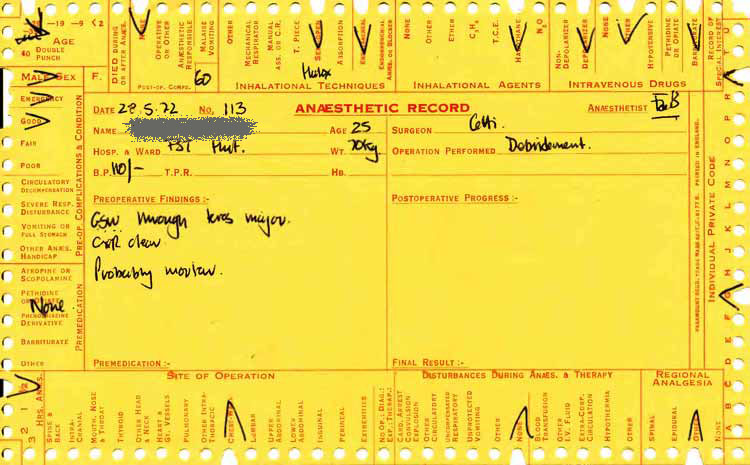 -19 -9 <2
40 DOUBLE PUNCH
AGE
MALE SEX F.
DIED DURING OR AFTER ANÆS.
NONE
OPERATIVE OR OTHER
ANÆSTHETIC RESPONSIBLE
MALAISE VOMITING
OTHER
POST-OP. COMPS.
60
MECHANICAL RESPIRATOR
MANUAL ASS. OR C.R.
T. PIECE
ABSORPTION
Halox
INHALATIONAL TECHNIQUES
NONE
OTHER
ETHER
C₃H₆
T.C.E.
HALOTHANE
N₂O
INHALATIONAL AGENTS
NON-DEPOLARIZER
DEPOLARIZER
NONE
OTHER
HYPOTENSIVE
PETHIDINE OR OPIATE
BARBITURATE
INTRAVENOUS DRUGS
RECORD OF SPECIAL INTEREST
EMERGENCY
GOOD
FAIR
POOR
CIRCULATORY DECOMPENSATION
SEVERE RESP. DISTURBANCE
VOMITING OR FULL STOMACH
OTHER ANÆS. HANDICAP
PRE-OP. COMPLICATIONS & CONDITION
ATROPINE OR SCOPOLAMINE
PETHIDINE OR OPIATE
None
PHENOTHIAZINE DERIVATIVE
BARBITURATE
OTHER
PREMEDICATION
DATE 28.5.72 No. 113
ANÆSTHETIC RECORD
ANÆSTHETIST
NAME AGE 25
SURGEON
HOSP. & WARD FST WT. 70kg
OPERATION PERFORMED Debridement.
B.P. 110/- T.P.R. HB.
PREOPERATIVE FINDINGS :-
GSW through teres major.
CXR clear
Probably
PREMEDICATION :-
POSTOPERATIVE PROGRESS :-
FINAL RESULT :-
PRINTED IN ENGLAND.
INDIVIDUAL PRIVATE CODE
A B C D E F G H J K L M N O P R S T U
3 2 1
HRS. ANÆS.
SITE OF OPERATION
SPINE & BACK
INTRA-CRANIAL
MOUTH, NOSE & THROAT
THYROID
OTHER HEAD & NECK
HEART & GT. VESSELS
PULMONARY
OTHER INTRA-THORACIC
LUMBAR
UPPER ABDOMINAL
LOWER ABDOMINAL
INGUINAL
PERINEAL
EXTREMITIES
NO OP. DIAG.: EXP. THERAP.:
DISTURBANCES DURING ANÆS. & THERAPY
CARD. ARREST CONVULSION EXPLOSION
OTHER CIRCULATORY
UNCOMPENSATED RESPIRATORY
UNPROTECTED VOMITING
OTHER
NONE
BLOOD TRANSFUSION
OTHER I.V. FLUID
EXTRA-CORP. CIRCULATION
HYPOTHERMIA
OTHER
REGIONAL ANALGESIA
SPINAL
EPIDURAL
OTHER
NONE